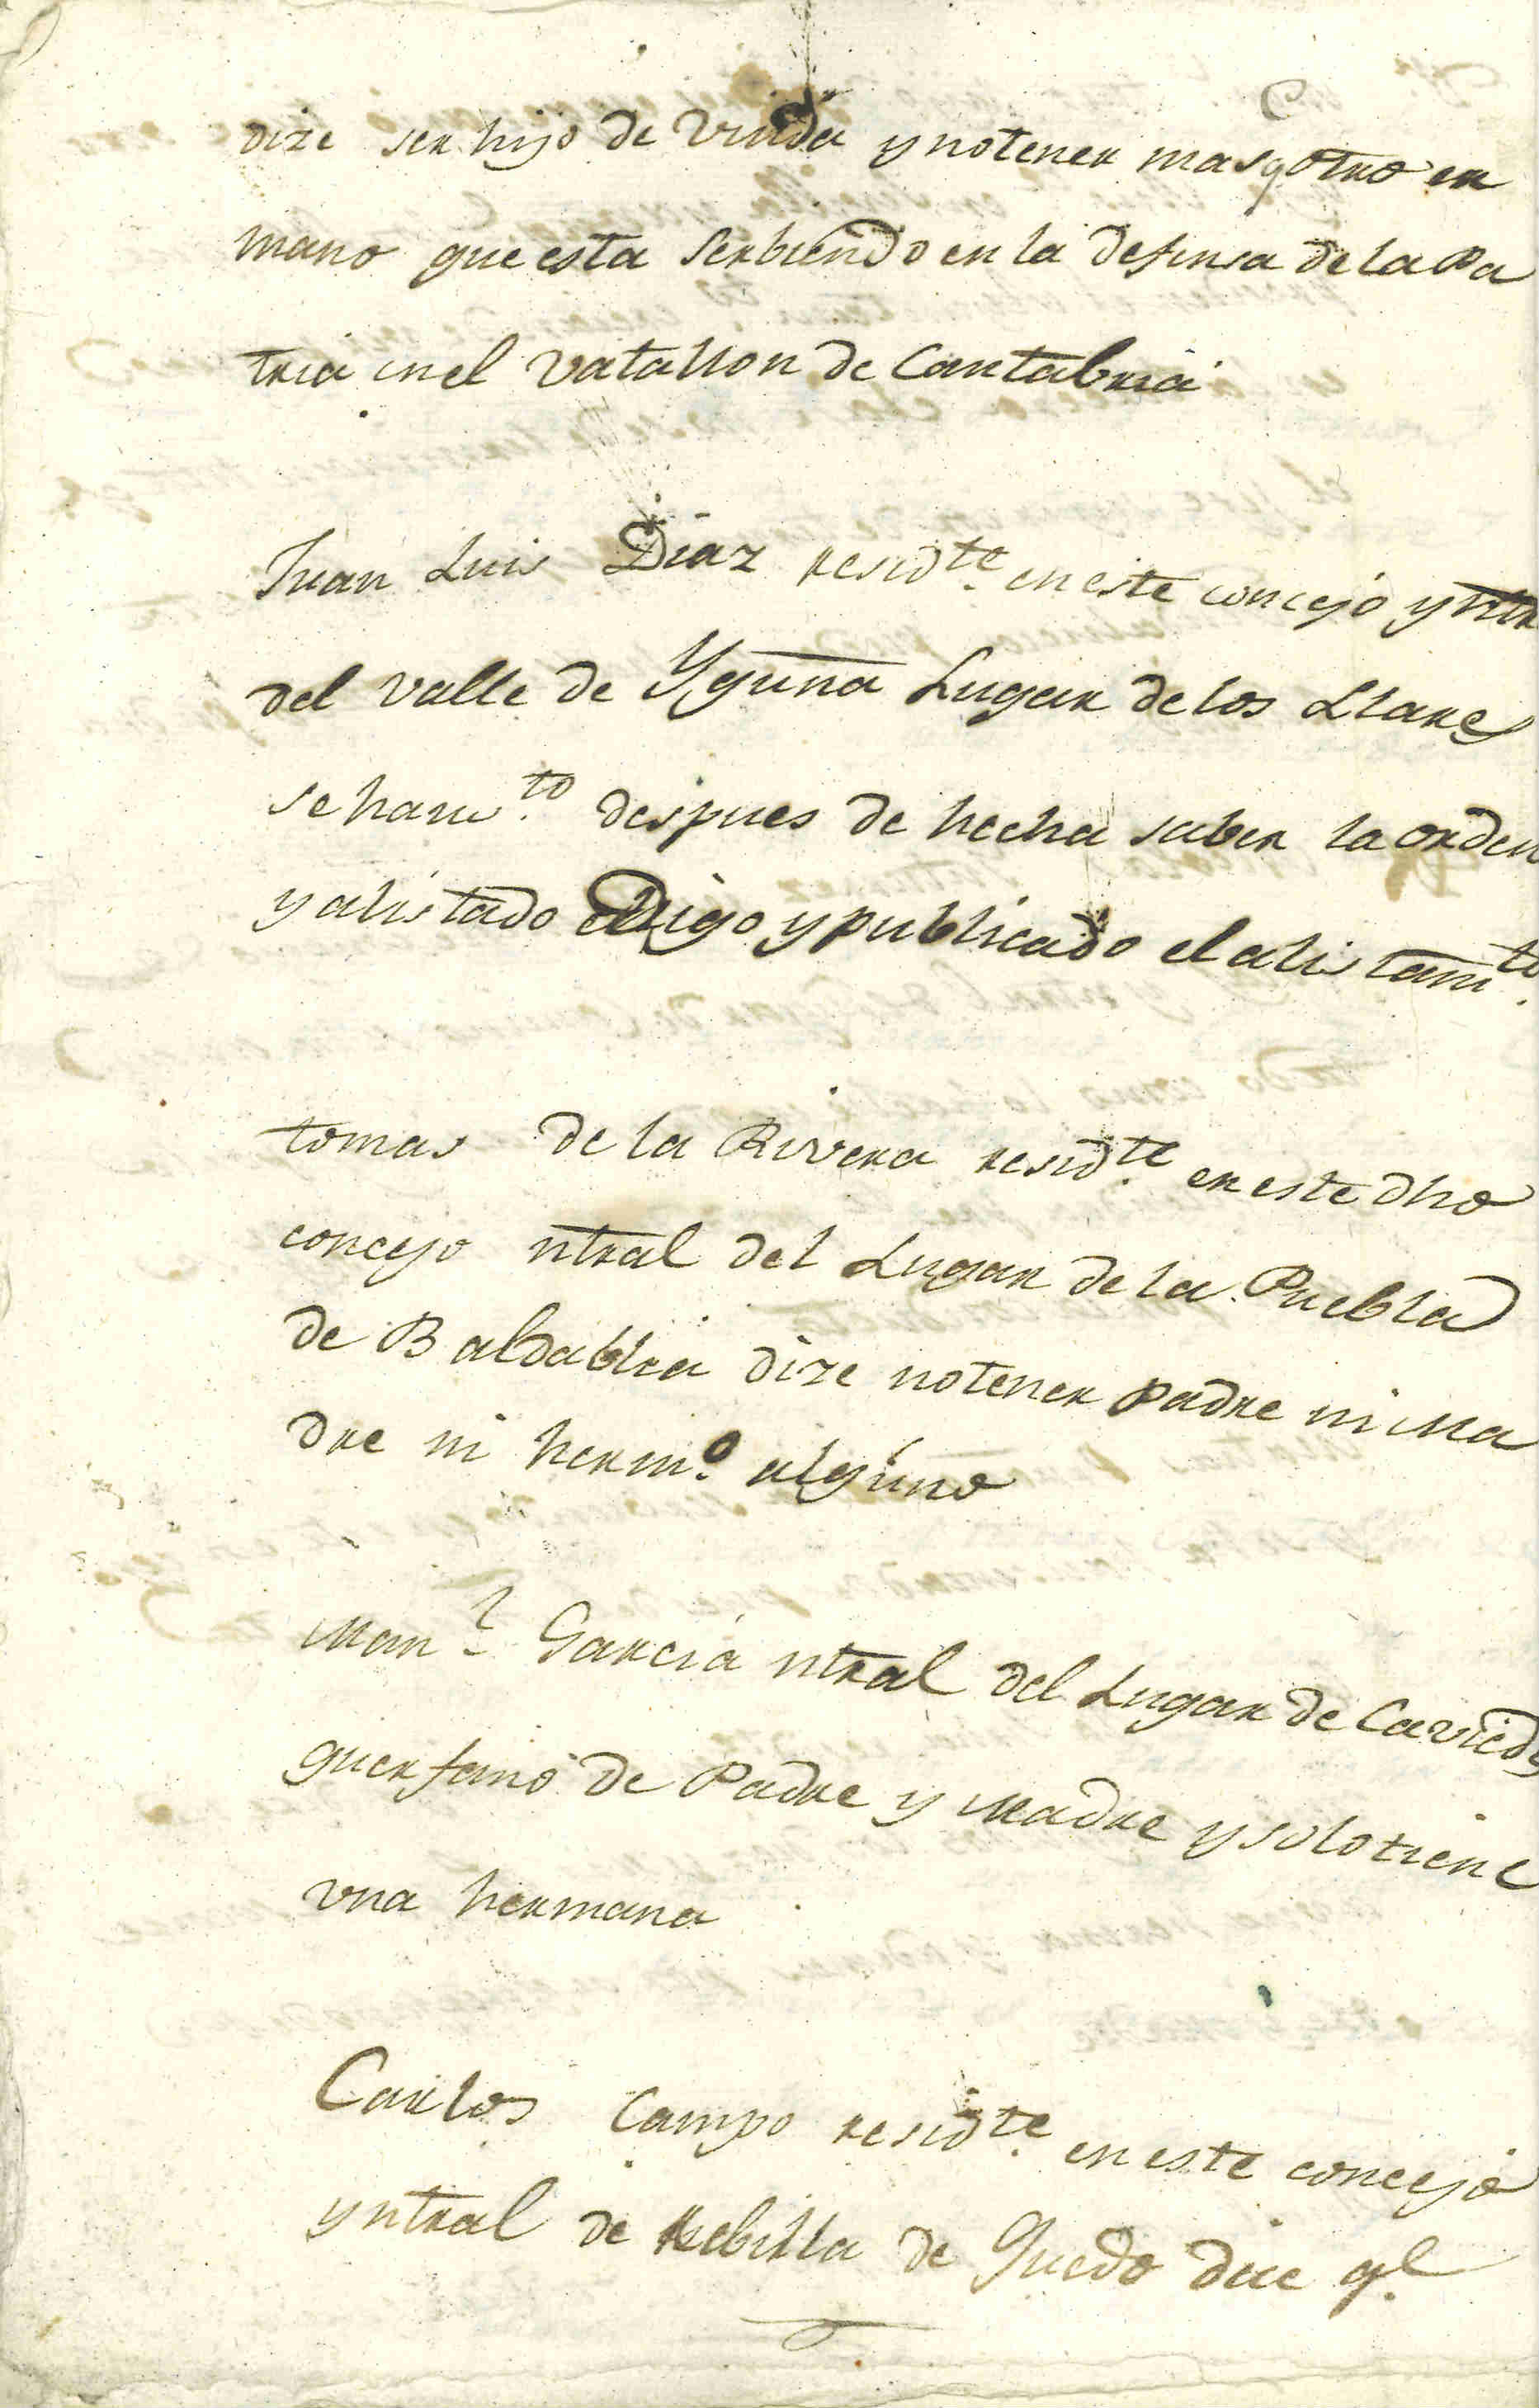 dize ser hijo de Viuda y notener mas q otro er
mano que esta serbiendo en la defensa de la Pa
tria en el vatallon de Cantabria
Juan Luis Diaz residte. en este concejo y ntr
del valle de Yguña Lugar de los Llares
se despues de hecha saber la orden
y alistado Digo y publicado el alistamto.
tomas de la Rivera residte. en este dho
concejo ntral del Lugar de la Puebla
de Baldabria dize notener Padre ni Ma
dre ni hermo. alguno
Manl. Garcia ntral del Lugar de Caviedes
guerfano de Padre y Madre y solo tiene
vna hermana
Carlos Campo residte. en este concejo
y ntral de Rebilla de Guedo dice ql.